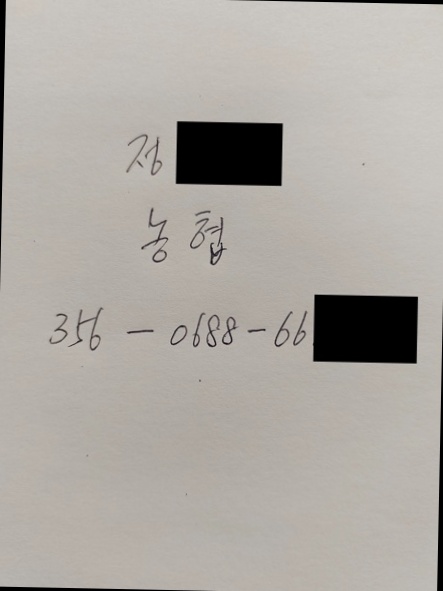 정
농협
356 - 0688 - 66